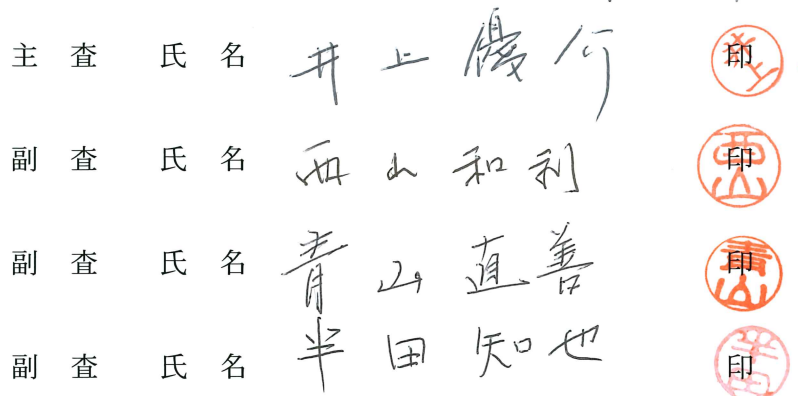 主査 氏名 井上優介 印
副査 氏名 西山和利 印
副査 氏名 青山直善 印
副査 氏名 半田知也 印